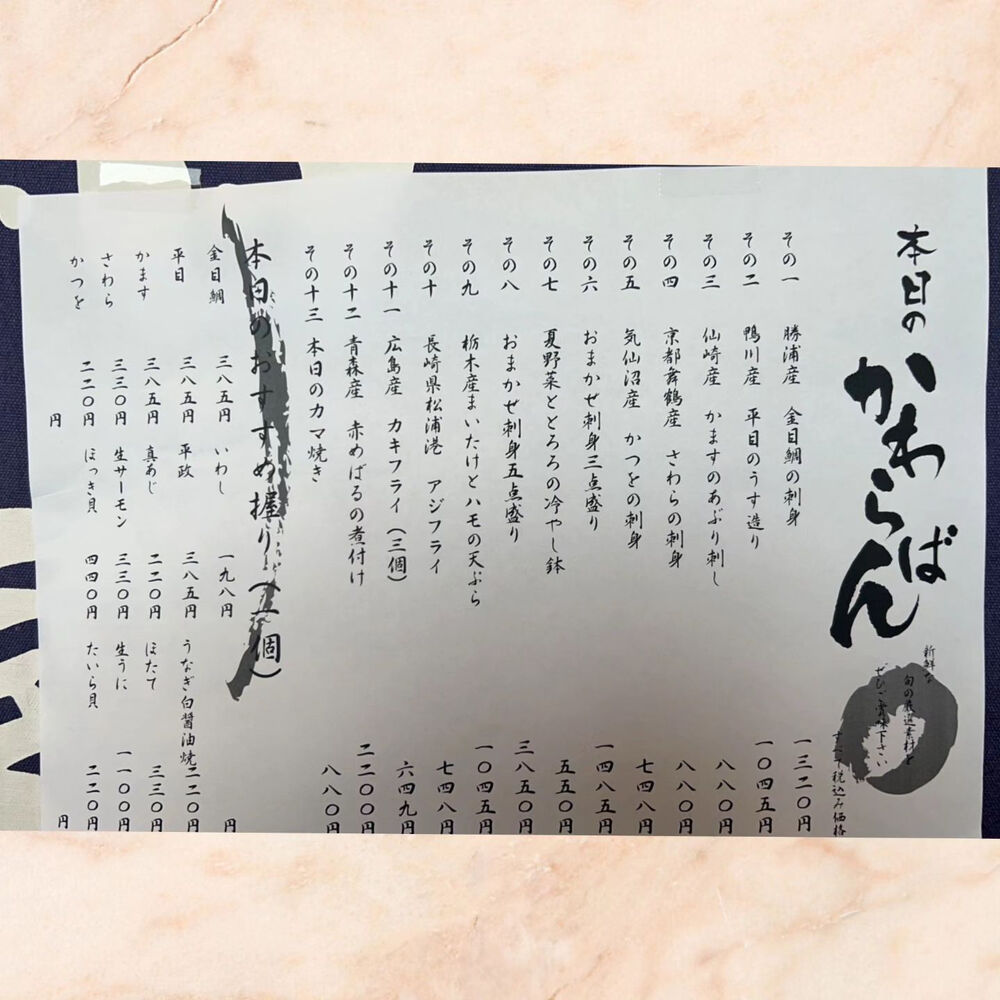 本日の かわらばん
新鮮な
旬の厳選素材を
ぜひご賞味下さい
すべて税込み価格
その一 勝浦産 金目鯛の刺身 一三二〇円
その二 鴨川産 平目のうす造り 一〇四五円
その三 仙崎産 かますのあぶり刺し 八八〇円
その四 京都舞鶴産 さわらの刺身 八八〇円
その五 気仙沼産 かつをの刺身 七四八円
その六 おまかせ刺身三点盛り 一四八五円
その七 夏野菜ととろろの冷やし鉢 五五〇円
その八 おまかせ刺身五点盛り 三八五〇円
その九 栃木産まいたけとハモの天ぷら 一〇四五円
その十 長崎県松浦港 アジフライ 七四八円
その十一 広島産 カキフライ（三個） 六四九円
その十二 青森産 赤めばるの煮付け 二二〇〇円
その十三 本日のカマ焼き 八八〇円
本日のおすすめ握り（一個）
金目鯛 三八五円 いわし 一九八円 円
平目 三八五円 平政 三八五円 うなぎ白醤油焼 二二〇円
かます 三八五円 真あじ 二二〇円 ほたて 三三〇円
さわら 三三〇円 生サーモン 三三〇円 生うに 一一〇〇円
かつを 二二〇円 ほっき貝 四四〇円 たいら貝 二二〇円
円 円